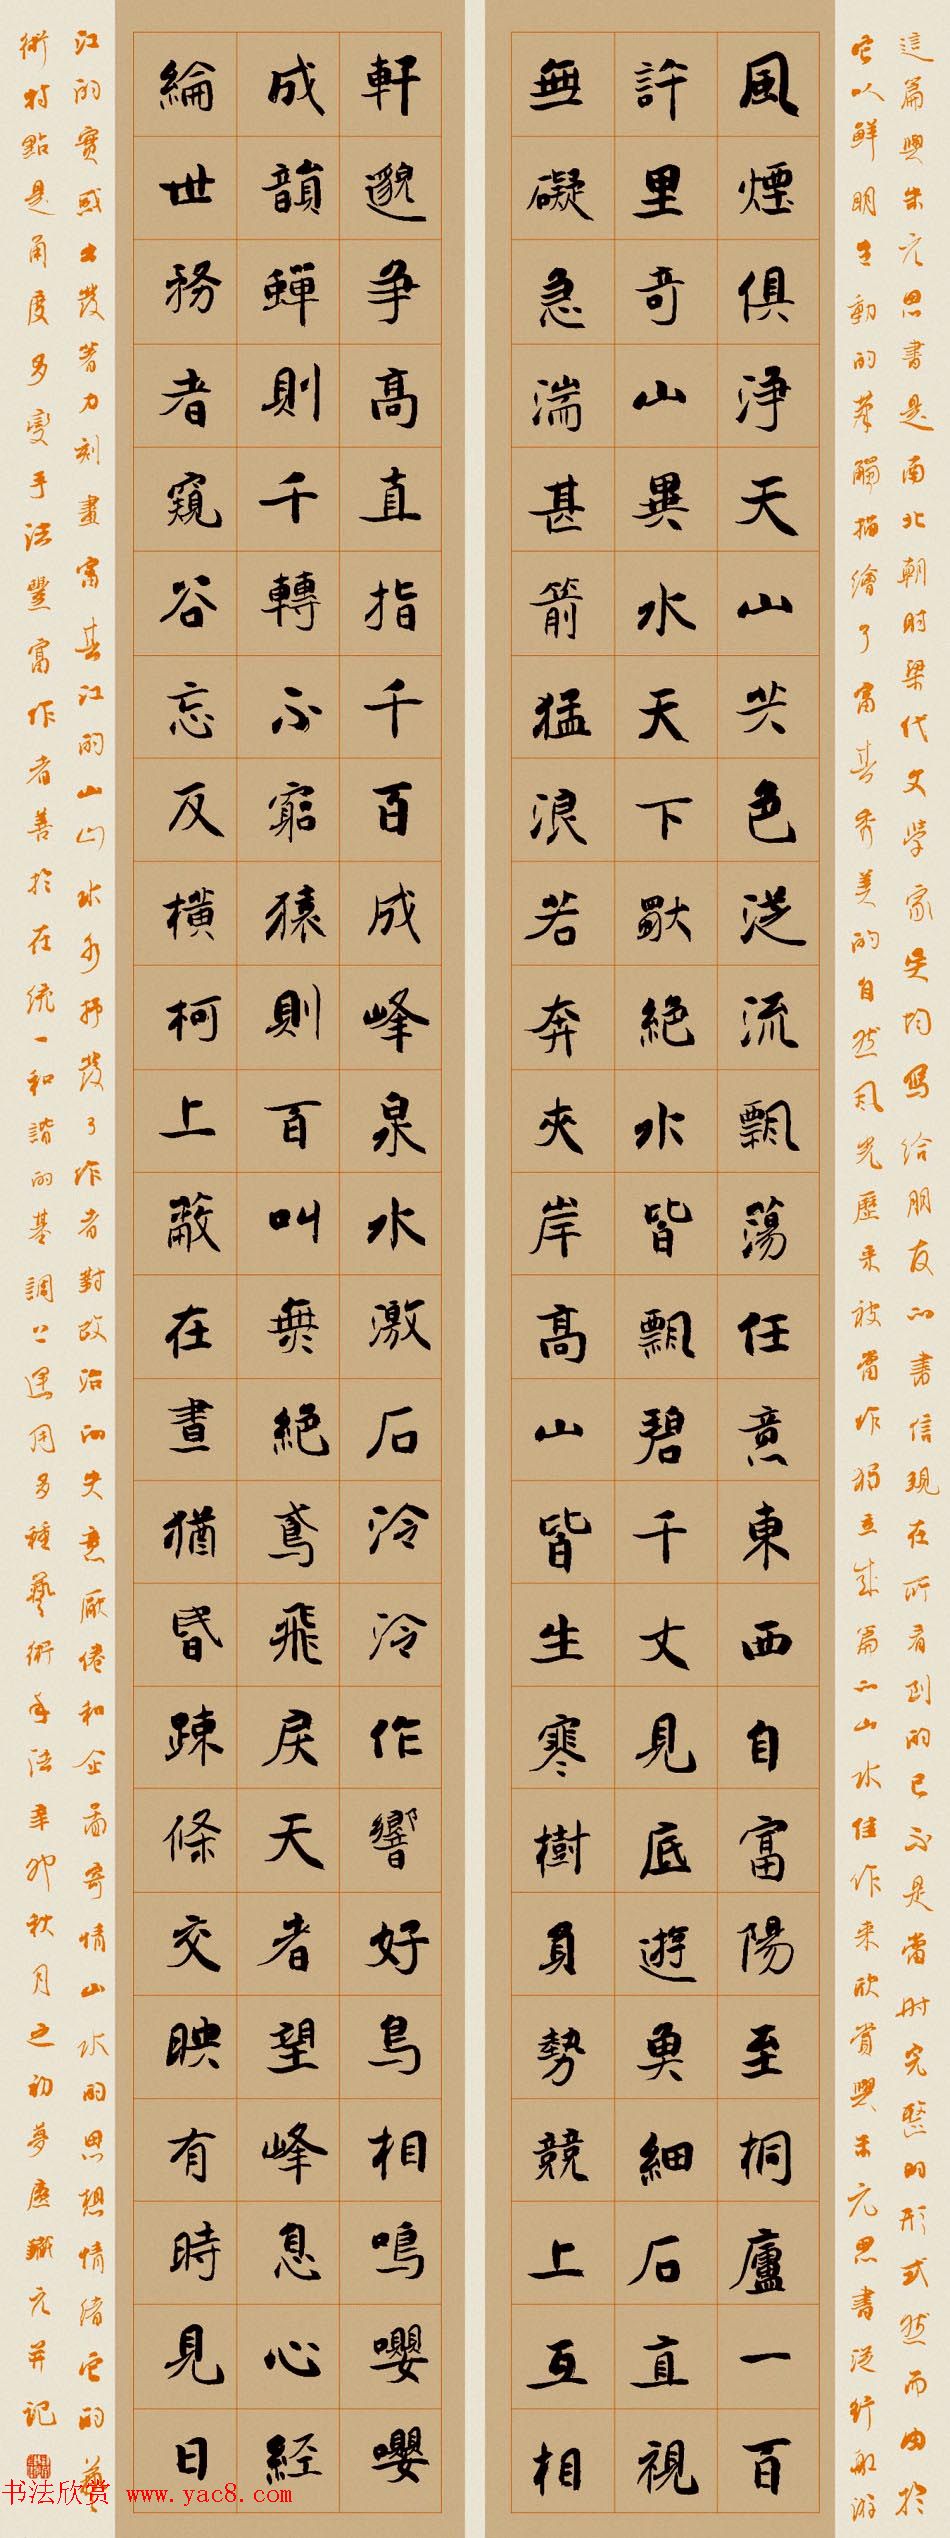 這篇與朱元思書是南北朝时梁代文學家吴均寫給朋友的書信現在所看到的已不是當时完整的形式然而由於
它以鲜明生動的筆觸描繪了富春秀美的自然風光歷来被當作獨立成篇的山水佳作来欣賞與朱元思書從行船游
風煙俱浄天山共色從流飄蕩任意東西自富陽至桐廬一百
許里奇山異水天下獨絶水皆飄碧千丈見底遊魚細石直視
無礙急湍甚箭猛浪若奔夾岸高山皆生寒樹負勢競上互相
軒邈争高直指千百成峰泉水激石泠泠作響好鳥相鳴嚶嚶
成韻蟬則千轉不窮猿則百叫無絶鳶飛戾天者望峰息心經
綸世務者窺谷忘反橫柯上蔽在晝猶昏疎條交映有時見日
江的實感出發着力刻畫富春江的山山水水抒發了作者對政治的失意厭倦和企圖寄情山水的思想情緒它的藝
術特點是角度多變手法豐富作者善於在統一和諧的基調上運用多種藝術手法辛卯秋月之初夢元并記
书法欣赏 www.yac8.com